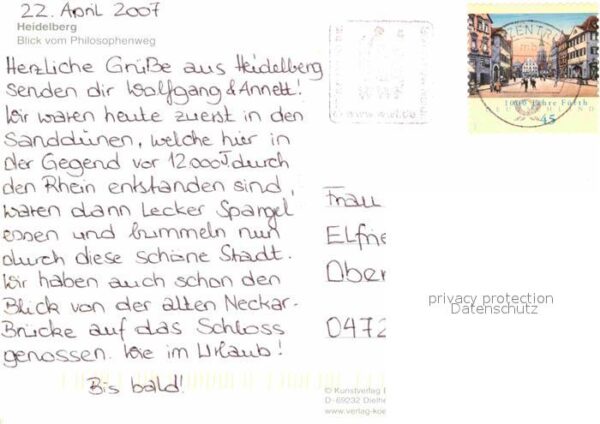 22. April 2007
Heidelberg
Blick vom Philosophenweg
Herzliche Grüße aus Heidelberg
senden dir Wolfgang & Annett!
Wir waren heute zuerst in den
Sanddünen, welche hier in
der Gegend vor 12000 J durch
den Rhein entstanden sind,
waren dann Lecker Spargel
essen und bummeln nun
durch diese schöne Stadt.
Wir haben auch schon den
Blick von der alten Neckar-
Brücke auf das Schloss
genossen. Wie im Urlaub!
Bis bald!
WWF
www.wwf.de
ZENTRUM
1000 Jahre Fürth
DEUTSCHLAND
45
Frau
Elfrie
Ober
0472
privacy protection
Datenschutz
© Kunstverlag
D-69232 Dielhe
www.verlag-koe